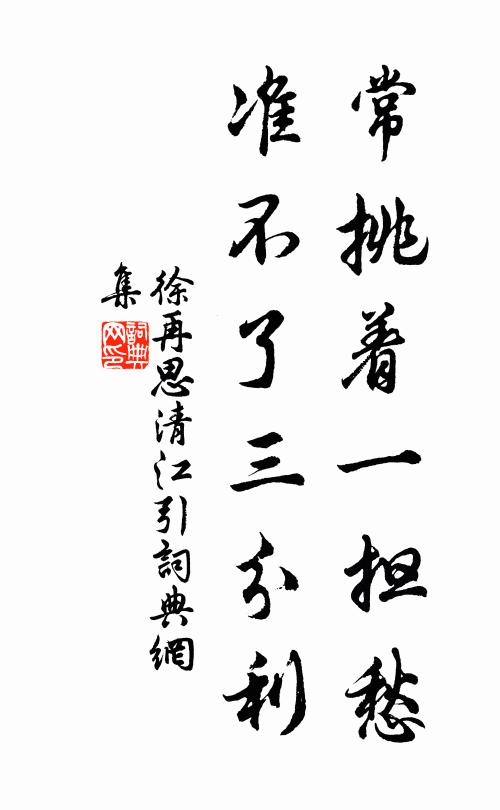 常挑着一担愁
准不了三分利
徐再思清江引詞典網
集
詞典
网印